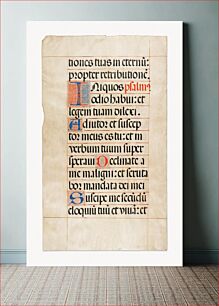 tiones tuas in eternū:
propter retributionē.
Iniquos psalmus
odio habui: et
legem tuam dilexi.
Adiutor et suscep
tor meus es tu: et in
verbum tuum super
speravi Declinate a
me maligni: et scruta
bor mandata dei mei
Suscipe me secūdū
eloquiū tuū et vivā: et